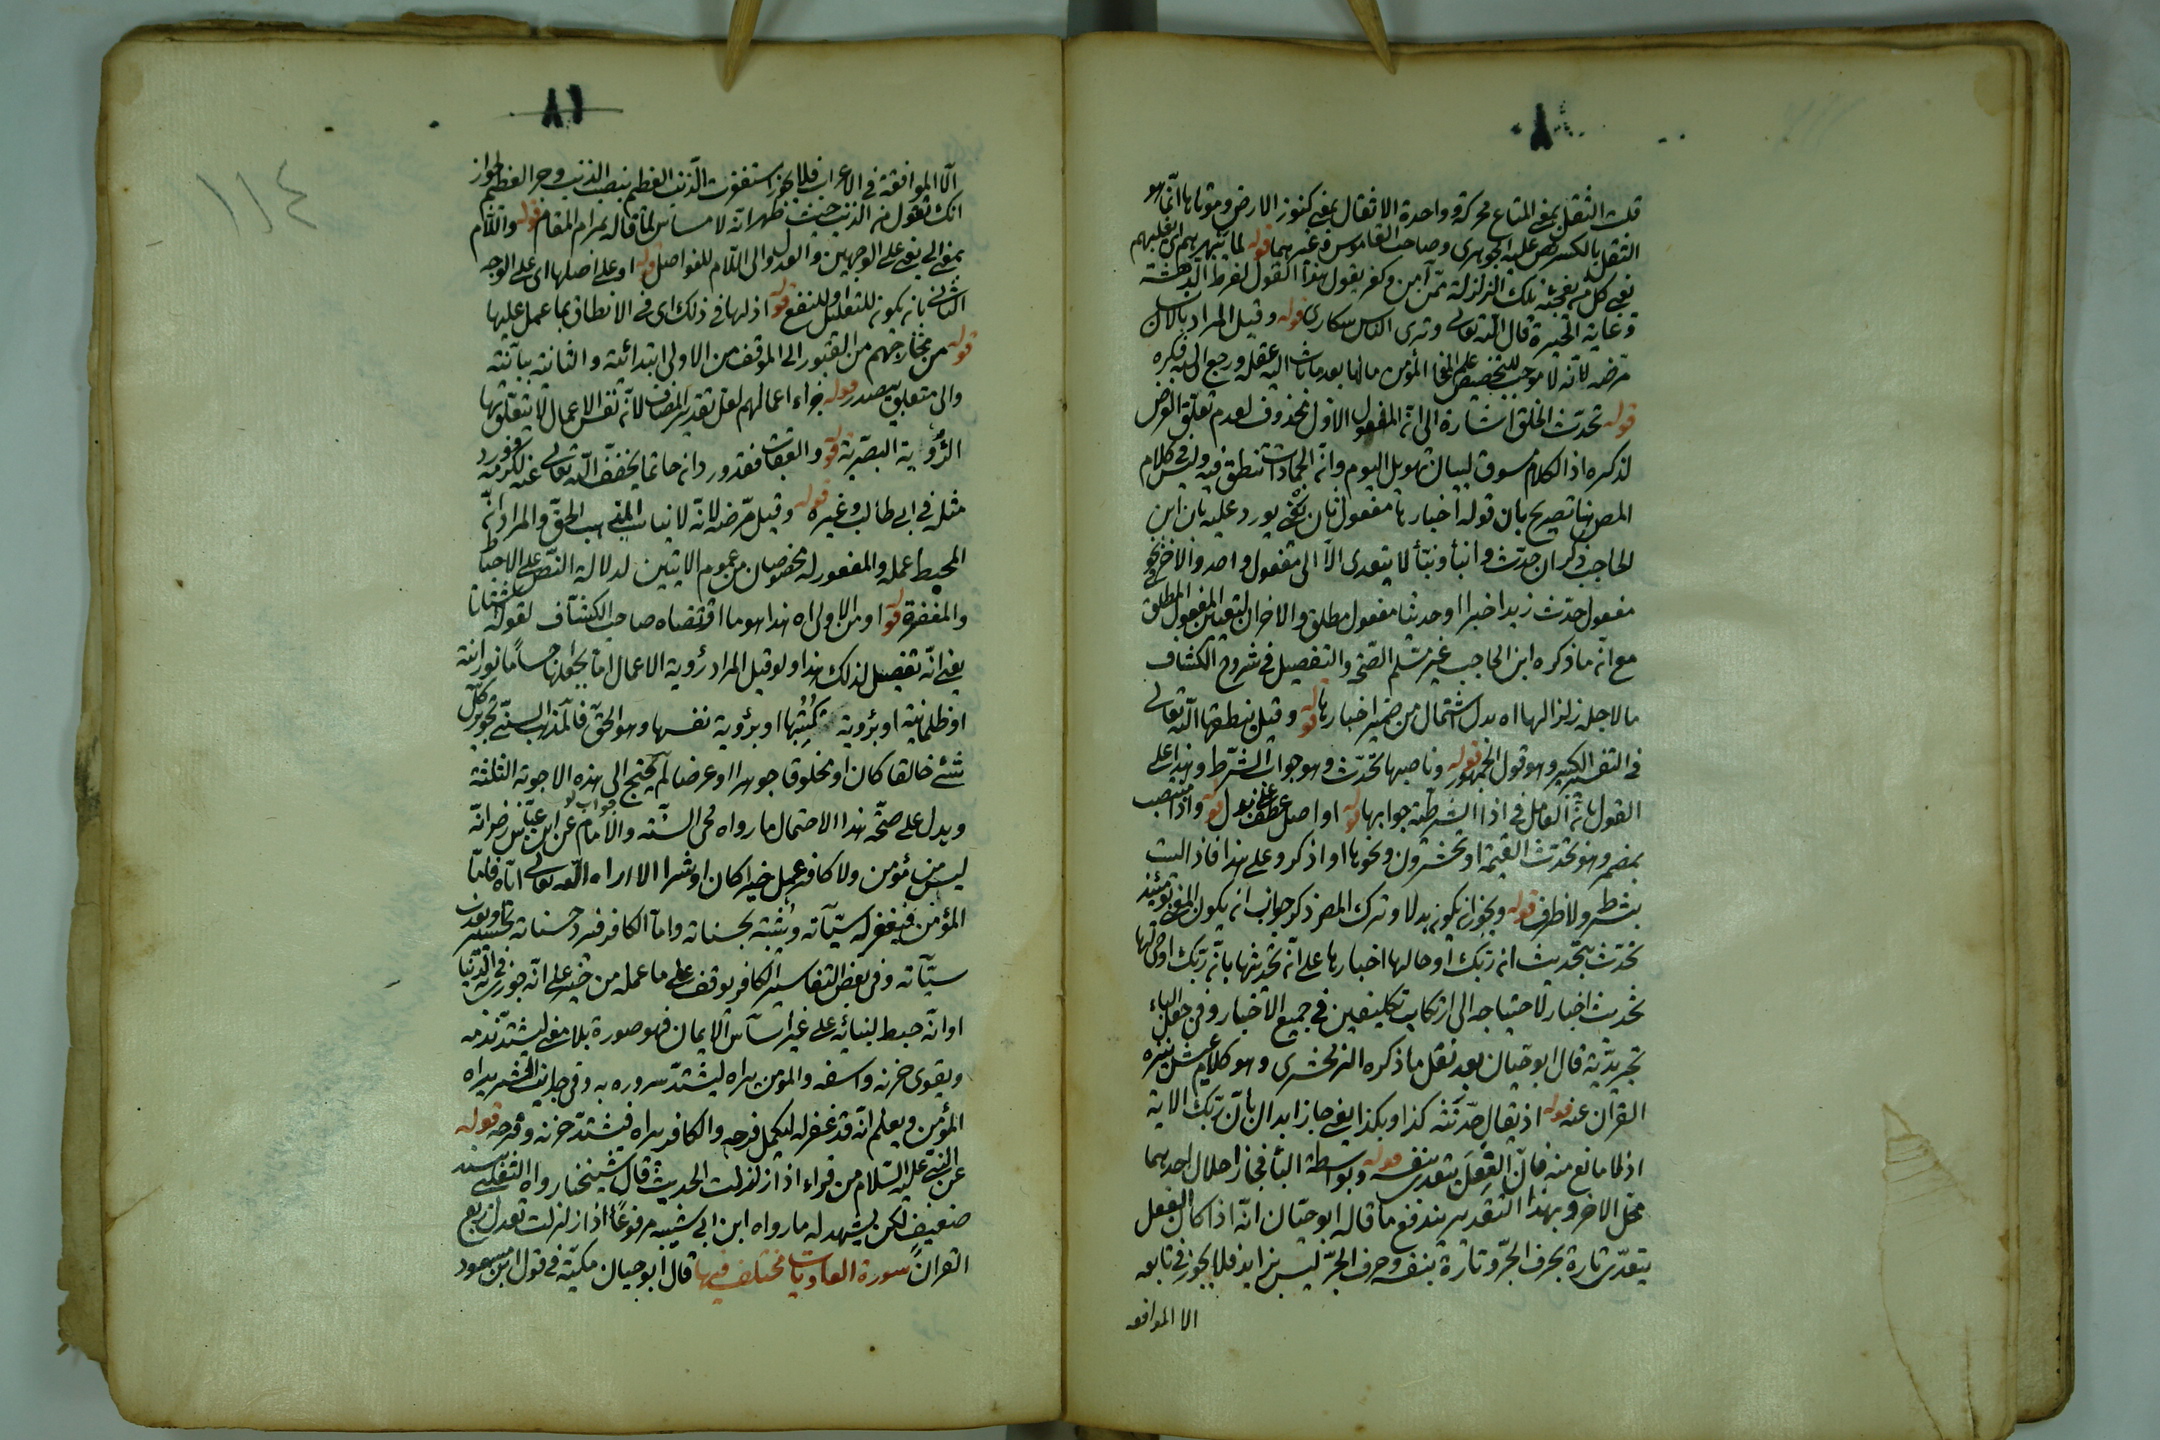 قلت الثقل بمعنى المتاع محركة وواحدة الاثقال بمعنى كنوز الارض وموتاها انما هو
الثقل بالكسر نص عليه الجوهرى وصاحب القاموس وغيرهما قوله لما يبهرهم اى يغلبهم
يعنى كل من يفجئه تلك الزلزلة ممن آمن وكفر يقول هذا القول لفرط الدهشة
وغاية الحيرة قال الله تعالى وترى الناس سكارى قوله وقيل المراد بالانسان
مرضه لانه لا موجب للتخصيص المؤمن مالها بعد ما ثاب اليه عقله ورجع اليه فكره
قوله تحدث الخلق اشارة الى ان المفعول الاول محذوف لعدم تعلق الغرض
لذكره اذ الكلام مسوق لبيان تهويل اليوم وان الجمادات تنطق فيه وليس في كلام
المص هنا تصريح بان قوله اخبارها مفعول ثان لكى يورد عليه بان ابن
الحاجب ذكر ان حدث وانبأ ونبأ لا يتعدى الا الى مفعول واحد والاخر في نحو
مفعول حدث زيدا خبرا او حديثا مفعول مطلق والاخران لتعيين المفعول المطلق
مع ان ما ذكره ابن الحاجب غير مسلم الصحة والتفصيل في شروح الكشاف
ما لاجله زلزالها اه بدل اشتمال من ضمير اخبارها قوله وقيل ينطقها الله تعالى
في التفسير الكبير وهو قول الجمهور قوله وناصبها تحدث وهو جواب الشرط وهذا على
القول بان العامل في اذا الشرطية جوابها قوله او اصل عطف على بدل قوله واذا منتصب
بمضمر وهو تحدث القيمة او تحشرون ونحوها او اذكر وعلى هذا فاذا ليست
بشرط ولا ظرف قوله ويجوز ان يكون بدلا وترك المص ذكر جواز ان يكون المعنى يومئذ
تحدث بتحديث ان ربك اوحى لها اخبارها على ان تحديثها بان ربك اوحى لها
تحديث اخبار لاحتياجه الى ارتكاب تكليفين في جميع الاخبار وفي جعل الباء
تجريدية قال ابو حيان بعد نقل ما ذكره الزمخشرى وهو كلام عفش ينزه
القران عنه قوله اذ يقال حدثته كذا وبكذا يعنى جاز ابدال بان ربك الاية
اذ لا مانع منه فان الفعل يتعدى بنفسه قوله وبواسطة الباء فجاز احلال احدهما
محل الاخر وبهذا التقدير يندفع ما قاله ابو حيان انه اذا كان الفعل
يتعدى تارة بحرف الجر وتارة بنفسه وحرف الجر ليس بزايد فلا يجوز في تابعه
الا الموافقه
٨١
١١٤
الا الموافقة في الاعراب فلا يجوز استغفرت الذنب العظيم بنصب الذنب وجر العظيم لجواز
انك تقول من الذنب حيث ظهر انه لا مساس لما قاله بمرام المقام قوله واللام
بمعنى الى يعنى على الوجهين والعدول الى اللام للفواصل قوله او على اصلها اى على الوجه
الثانى بان يكون للتعليل او للنفع قوله اذ لها في ذلك اى في الانطاق بما عمل عليها
قوله من مخارجهم من القبور الى الموقف من الاولى ابتدائية والثانية بيانية
والى متعلق بيصدر قوله جزاء اعمالهم لعل تقدير المضاف لان نفس الاعمال لا يتعلق بها
الرؤية البصرية قوله والعقاب فقد ورد ان حاتما يخفف الله تعالى عنه لكرمه وورد
مثله في ابى طالب وغيره قوله وقيل مرضه لانه لا يناسب المذهب الحق والمراد ان
المحيط عمله والمغفور له مخصوصان من عموم الايتين لدلالة النص على الاحباط
والمغفرة قوله او من الاولى اه هذا هو ما اقتضاه صاحب الكشاف لقوله اشتاتا
يعنى انه تفصيل لذلك هذا ولو قيل المراد رؤية الاعمال اما بجعلها حساما نورانية
او ظلمانية او برؤية كتبتها او برؤية نفسها وهو الحق فالمذهب السنى تجويز كل
شئ خالقا كان او مخلوقا جوهرا او عرضا لم يحتج الى هذه الاجوبة الثلثة
جواب لو
ويدل على صحة هذا الاحتمال ما رواه محى السنة والامام عن ابن عباس رض انه
ليس من مؤمن ولا كافر عمل خيرا كان او شرا الا اراه الله تعالى اياه فاما
المؤمن فيغفر له سيآته ويثيبه بحسناته واما الكافر فيرد حسناته تحسيرا ويعذب
سيآته وفى بعض التفاسير الكافر يوقف على ما عمله من خير على انه جوزى في الدنيا
او انه حبط لبنيائه على غير اساس الايمان فهو صورة بلا معنى ليشتد ندمه
ويقوى حزنه واسفه والمؤمن يراه ليشتد سروره به وفى جانب الشر يراه
المؤمن ويعلم انه قد غفر له ليكمل فرحه والكافر يراه فيشتد حزنه وترحه قوله
عن النبى عليه السلام من قراء اذا زلزلت الحديث قال شيخنا رواه الثعلبى بسند
ضعيف لكن يشهد له ما رواه ابن ابى شيبه مرفوعا اذا زلزلت تعدل ربع
القران سورة العاديات مختلف فيها قال ابو حيان مكية في قول ابن مسعود